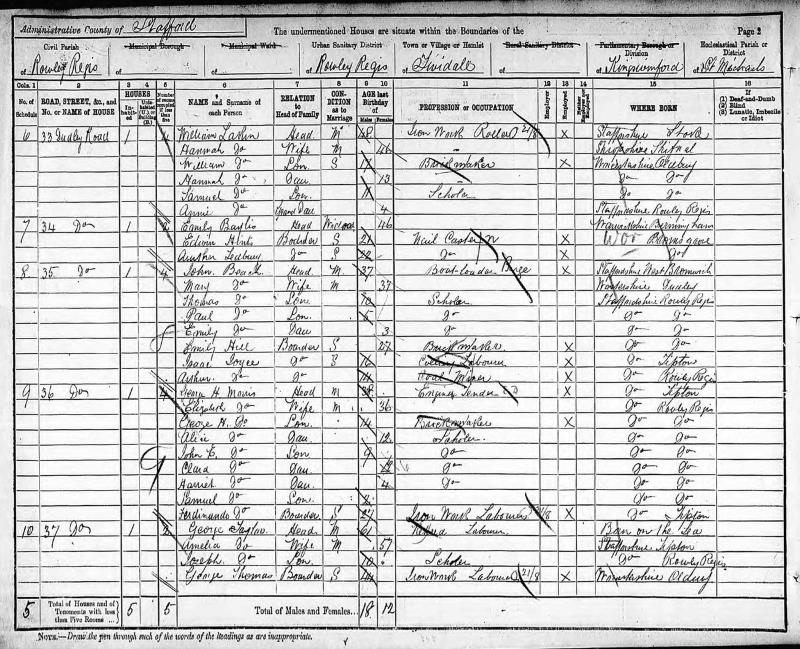 Administrative County of Stafford
The undermentioned Houses are situate within the Boundaries of the
Page 2
Civil Parish
of Rowley Regis
Municipal Borough
of
Municipal Ward
of
Urban Sanitary District
of Rowley Regis
Town or Village or Hamlet
of Tividale
Rural Sanitary District
of
Parliamentary Borough or Division
of Kingswinford
Ecclesiastical Parish or District
of St Michaels
Cols. 1 2 3 4 5 6 7 8 9 10 11 12 13 14 15 16
No. of Schedule
ROAD, STREET, &c., and No. or NAME of HOUSE
HOUSES
Inhabited
Number of rooms occupied if less than five
NAME and Surname of each Person
RELATION to Head of Family
CONDITION as to Marriage
AGE last Birthday of
Males
Females
PROFESSION or OCCUPATION
Employer
Employed
WHERE BORN
If
(1) Deaf-and-Dumb
(2) Blind
(3) Lunatic, Imbecile or Idiot
6 33 Dudley Road 1 4 William Head M 48 Iron Work Roller 21/8 x Staffordshire Stoke
Hannah Do Wife M 46 Shropshire Shifnal
William Do Son S 17 Brickmaker x Worcestershire Oldbury
Hannah Do Dau 13 Do Do
Samuel Do Son 11 Scholar Do Do
Annie Do Grand Dau 4 Staffordshire Rowley Regis
7 34 Do 1 4 Emily Head Widow 46 Warwickshire Birmingham
Edwin Boarder S 21 Nail Caster x Wor Bromsgrove
Ledbury Do S 22 Do x Do
8 35 Do 1 4 John Beach Head M 37 Boat loader x Staffordshire West Bromwich
Mary Do Wife M 37 Worcestershire Dudley
Thomas Do Son 10 Scholar Staffordshire Rowley Regis
Paul Do Son 5 Do Do Do
Emily Do Dau 3 Do Do
Emily Hill Boarder S 27 Brick maker x Do Do
Isaac Joyce Do S 16 Labourer x Do Tipton
Do Do 14 x Do Rowley Regis
9 36 Do 1 4 Henry H Morris Head M 38 Engine Tender x Do Tipton
Elizabeth Do Wife M 36 Do Rowley Regis
George H. Do Son 14 Brickmaker x Do Do
Alice Do Dau 12 Scholar Do Do
John E. Do Son 9 Do Do Do
Clara Do Dau Do Do Do
Harriet Do Dau 4 Do Do
Samuel Do Son 2 Do Do
Ferdinando Do Boarder S 27 Iron Work Labourer 21/8 x Do Tipton
10 37 Do 1 George Taylor Head M 61 Labourer Born on the Sea
Amelia Do Wife M 57 Staffordshire Tipton
Joseph Do Son 10 Scholar Do Rowley Regis
George Thomas Boarder S Iron Work Labourer 21/8 x Worcestershire Oldbury
5 Total of Houses and of Tenements with less than Five Rooms ... 5 5 Total of Males and Females... 18 12
NOTE.—Draw the pen through such of the words of the headings as are inappropriate.